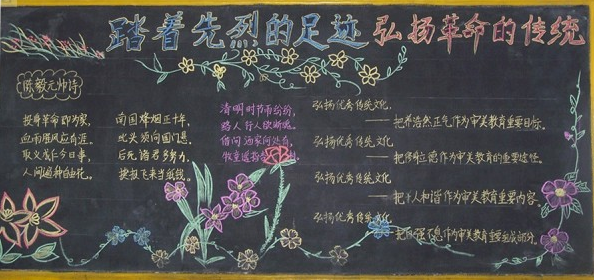 踏着先烈的足迹 弘扬革命的传统
陈毅元帅诗
投身革命即为家,
血雨腥风应有涯。
取义成仁今日事,
人间遍种自由花。
南国烽烟正十年,
此头须向国门悬。
后死诸君多努力,
捷报飞来当纸钱。
清明时节雨纷纷,
路人行人欲断魂。
借问酒家何处有,
牧童遥指
弘扬优秀传统文化,
——把养浩然正气作为审美教育重要目标。
弘扬优秀传统文化
——把 作为审美教育的重要途径。
弘扬优秀传统文化
——把个人和谐作为审美教育重要内容。
弘扬优秀传统文化
——把自强不息作为审美教育重要组成部分。